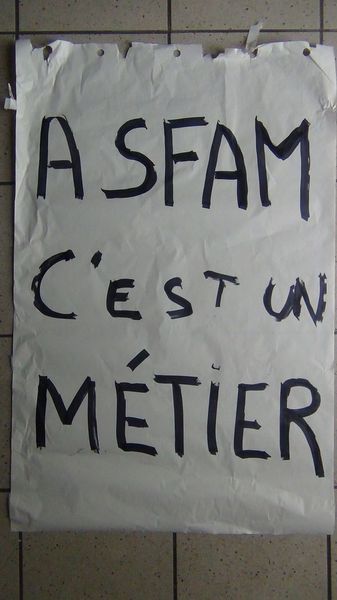 ASFAM
C'EST UN
MÉTIER